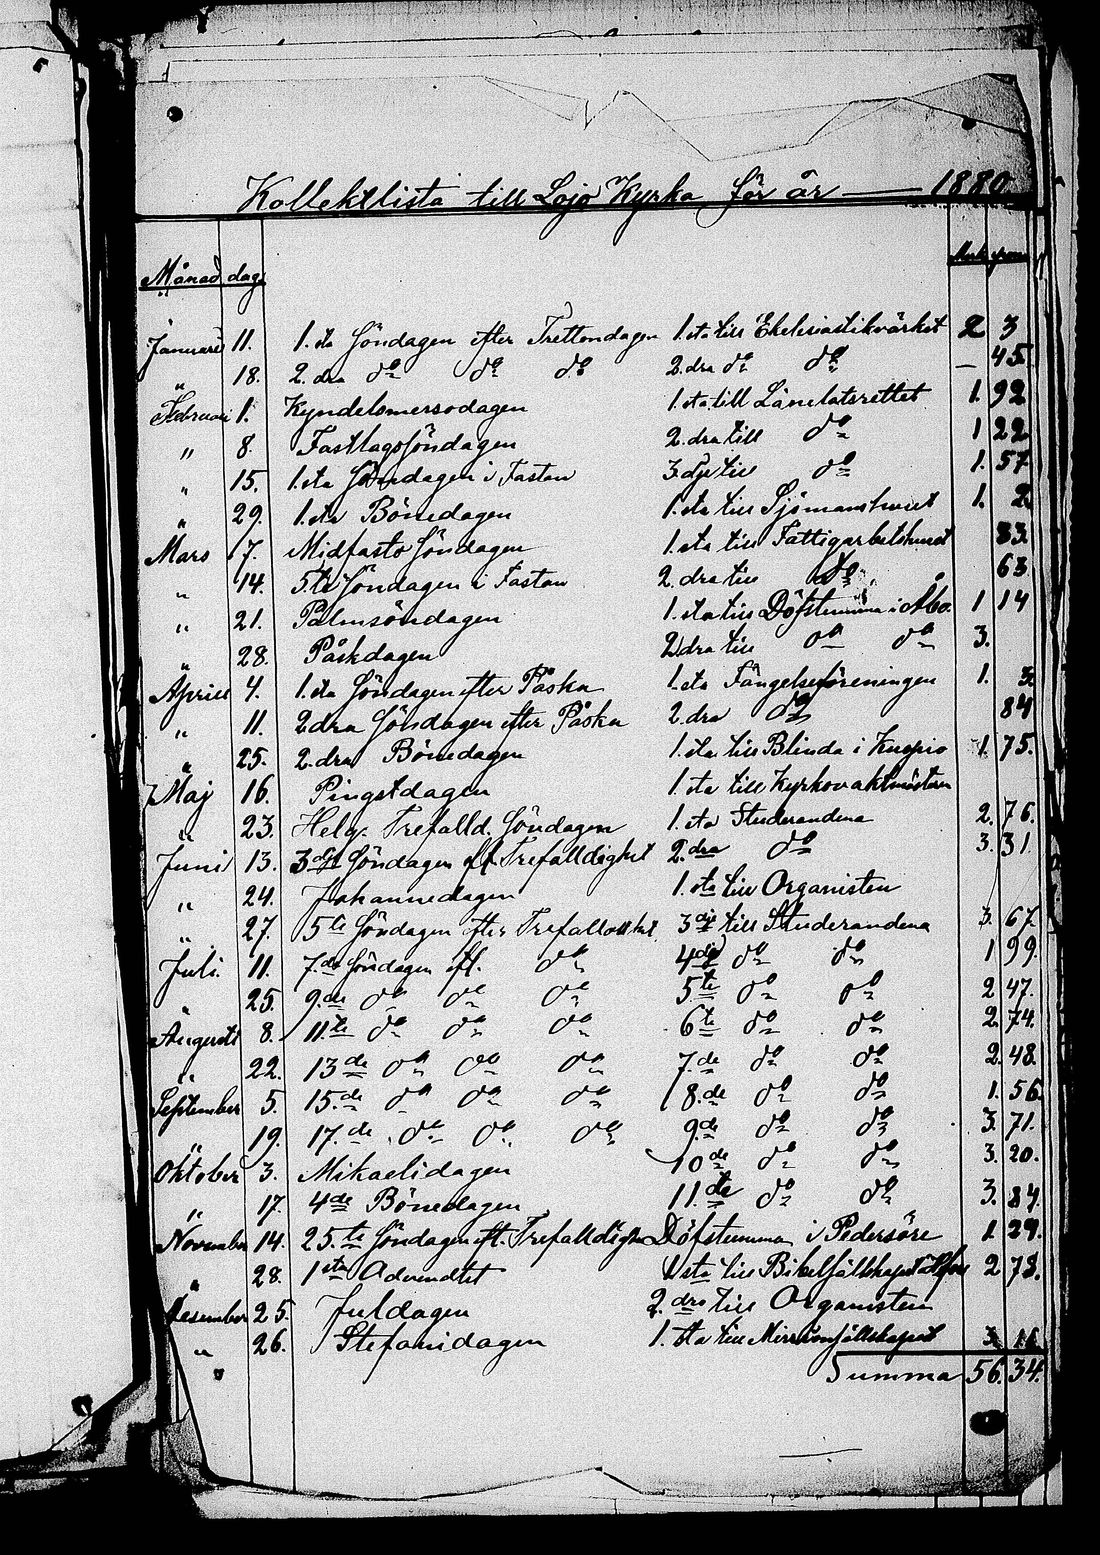 Kollektlista till Lojo Kyrka för år — 1880
Månad dag Mark penni
Januari 11. 1.sta Söndagen efter Trettondagen 1.sta till Eklesiastikvärket 2 3
" 18. 2.dra do do do 2.dra do do — 45.
Februari 1. Kyndelsmersodagen 1.sta till 1. 92
" 8. Fastlagsöndagen 2.dra till do 1 22
" 15. 1.sta Söndagen i Fastan 3dje till do 1. 57
" 29. 1.sta Bönedagen 1.sta till Sjömanshuset 1. 2.
Mars 7. Midfasto Söndagen 1.sta till Fattigarbetshuset 83.
" 14. 5.te Söndagen i Fastan 2.dra till do 63
" 21. Palmsöndagen 1.sta till Döfstumma i Åbo. 1 14
" 28. Påskdagen 2dra till do do 3.
April 4. 1.sta Söndagen efter Påska 1.sta Fångelseföreningen 1. 3.
" 11. 2dra Söndagen efter Påska 2.dra do 84
" 25. 2.dra Bönedagen 1.sta till Blinda i Kuopio 1. 75.
Maj 16. Pingstdagen 1.sta till Kyrkovaktmästaren
" 23. Helg. Trefalld. Söndagen 1.sta Studerandena 2. 76.
Juni 13. 3dje Söndagen eft. Trefalldighet 2.dra do 3. 31
" 24. Johannedagen 1.sta till Organisten
" 27. 5te Söndagen efter 3dje till Studerandena 3. 67.
Juli. 11. 7.de Söndagen eft. do 4de do do 1 99.
" 25. 9.de do do do 5te do do 2 47.
Augusti 8. 11.te do do do 6te do do 2. 74.
" 22. 13de do do do 7.de do do 2. 48.
September 5. 15.de do do do 8.de do do 1. 56.
19. 17.de do do do 9.de do do 3. 71.
Oktober 3. Mikaelidagen 10de do do 3. 20.
" 17. 4de Bönedagen 11.te do do 3. 84.
November 14. 25.te Söndagen eft. Trefalldighe Döfstumma i Pedersöre 1. 29.
" 28. 1sta Advendtet 1sta till Bibelsällskapet 2 78.
Desember 25. Juldagen 2.dra till Organisten
" 26. Stefanidagen 1.sta till Missionsällskapet 3 16
Summa 56. 34.